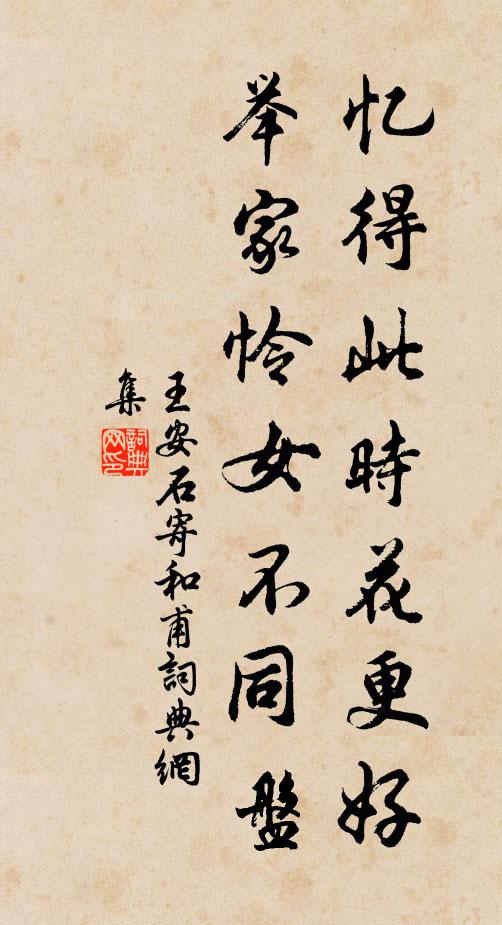 忆得此時花更好
举家怜女不同盤
王安石寄和甫詞典網
集
詞典网印